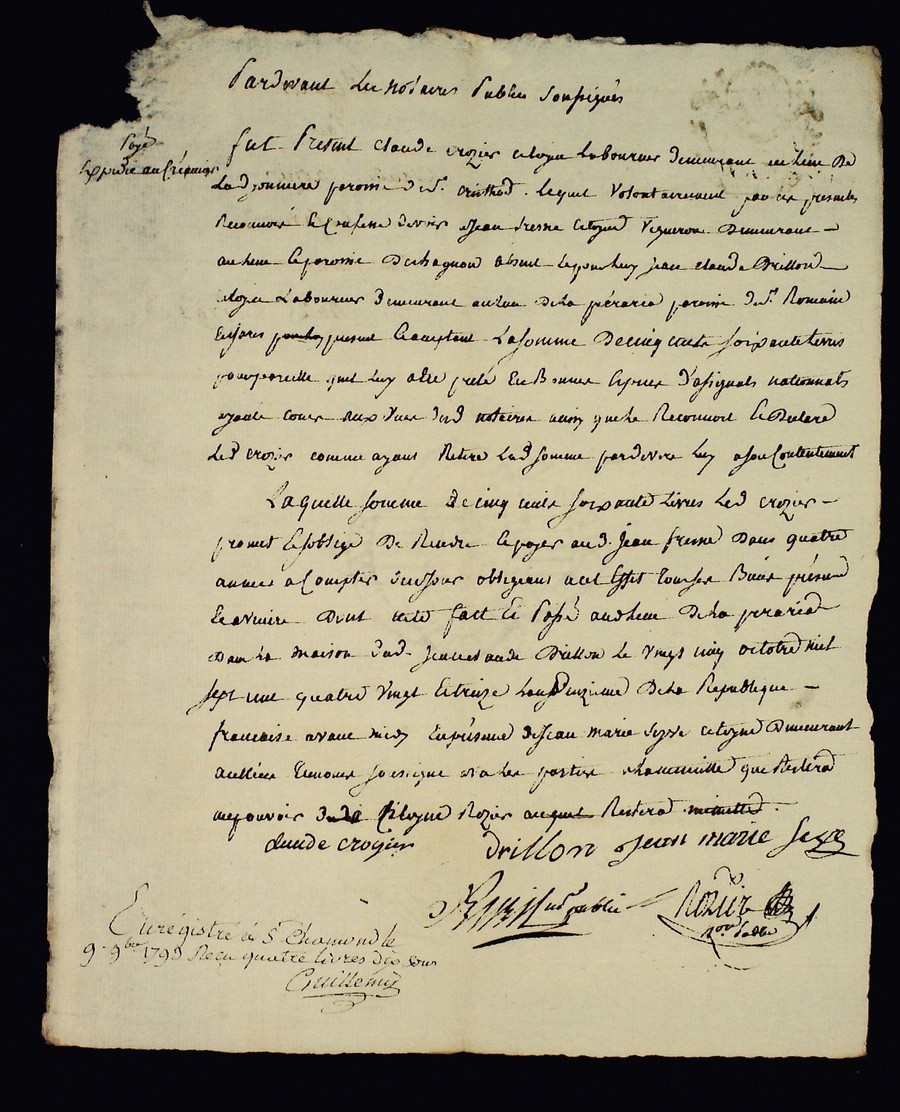 Pardevant les notaires Publics Soussignés
Payé
Expédié au Créancier
fut Présent Claude crozier citoyen Laboureur demeurant au Lieu De
La paroisse de St lequel Volontairement par ces presentes
Reconnoit & Confesse devoir a Jean fresne Citoyen Vigneron Demeurant
au lieu & paroisse De chagnon absent & pour luy jean claude Drillon
citoyen Laboureur demeurant au lieu de la péraria paroisse de St Romain
En jares present & acceptant La somme De cinq cents soixante Livres
pour pareille qui luy a été preté En Bonnes Especes d'assignats nationnals
ayants cours aux vues dud notaire ainsy que le Reconnoit & Declare
Led crozier comme ayant Retiré Lad somme pardevers luy a son Contentement
Laquelle somme De cinq cents soixante Livres Led crozier
promet & s'oblige De Rendre & payer aud. Jean fresne Dans quatre
années a Compter de ce jour obligeant a cet Effet tous ses Biens présents
& avenirs Dont acte fait & Passé audit lieu De la peraria
Dans La maison dud. Jean claude Drillon Le vingt cinq octobre mil
sept cent quatre vingt & treize L'an Deuzieme De La Republique
francaise avant midy En présence de Jean marie seyve citoyen Demeurant
aud lieu Temoins soussigné avec les parties a la minutte que Restera
au pouvoir du Citoyen Rozier
claude crozier drillon Jean marie Seyve
nore public Rozier
nore Public
Enrégistré à St Chamond le
9. 9bre 1793 Reçu quatre livres dix sous
Guillemin